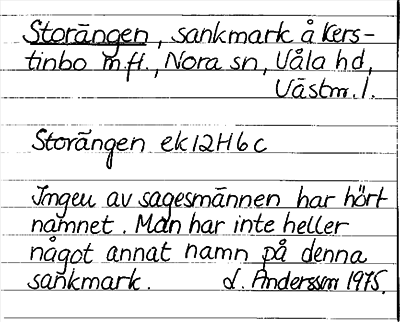 Storängen, sankmark å Kers-
tinbo m fl., Nora sn, Våla hd,
Västm. l.
Storängen ek 12H6c
Ingen av sagesmännen har hört
namnet. Man har inte heller
något annat namn på denna
sankmark. L. Andersson 1975.